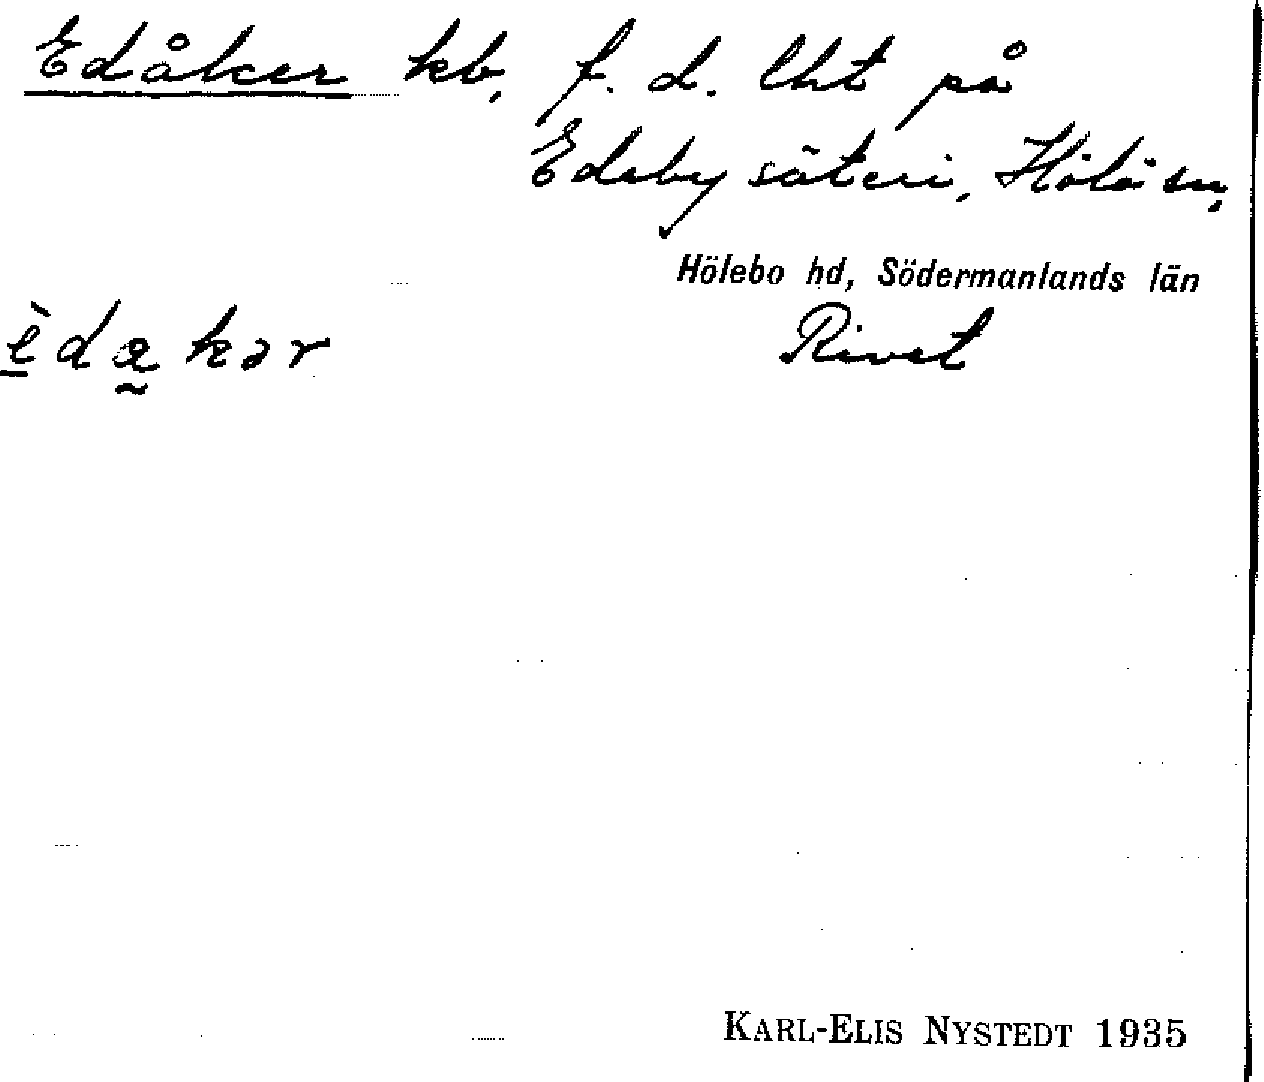 Edåker kb, f. d. lht på
Edeby säteri, Hölö sn,
Hölebo hd, Södermanlands län
èdakər Rivet
KARL-ELIS NYSTEDT 1935